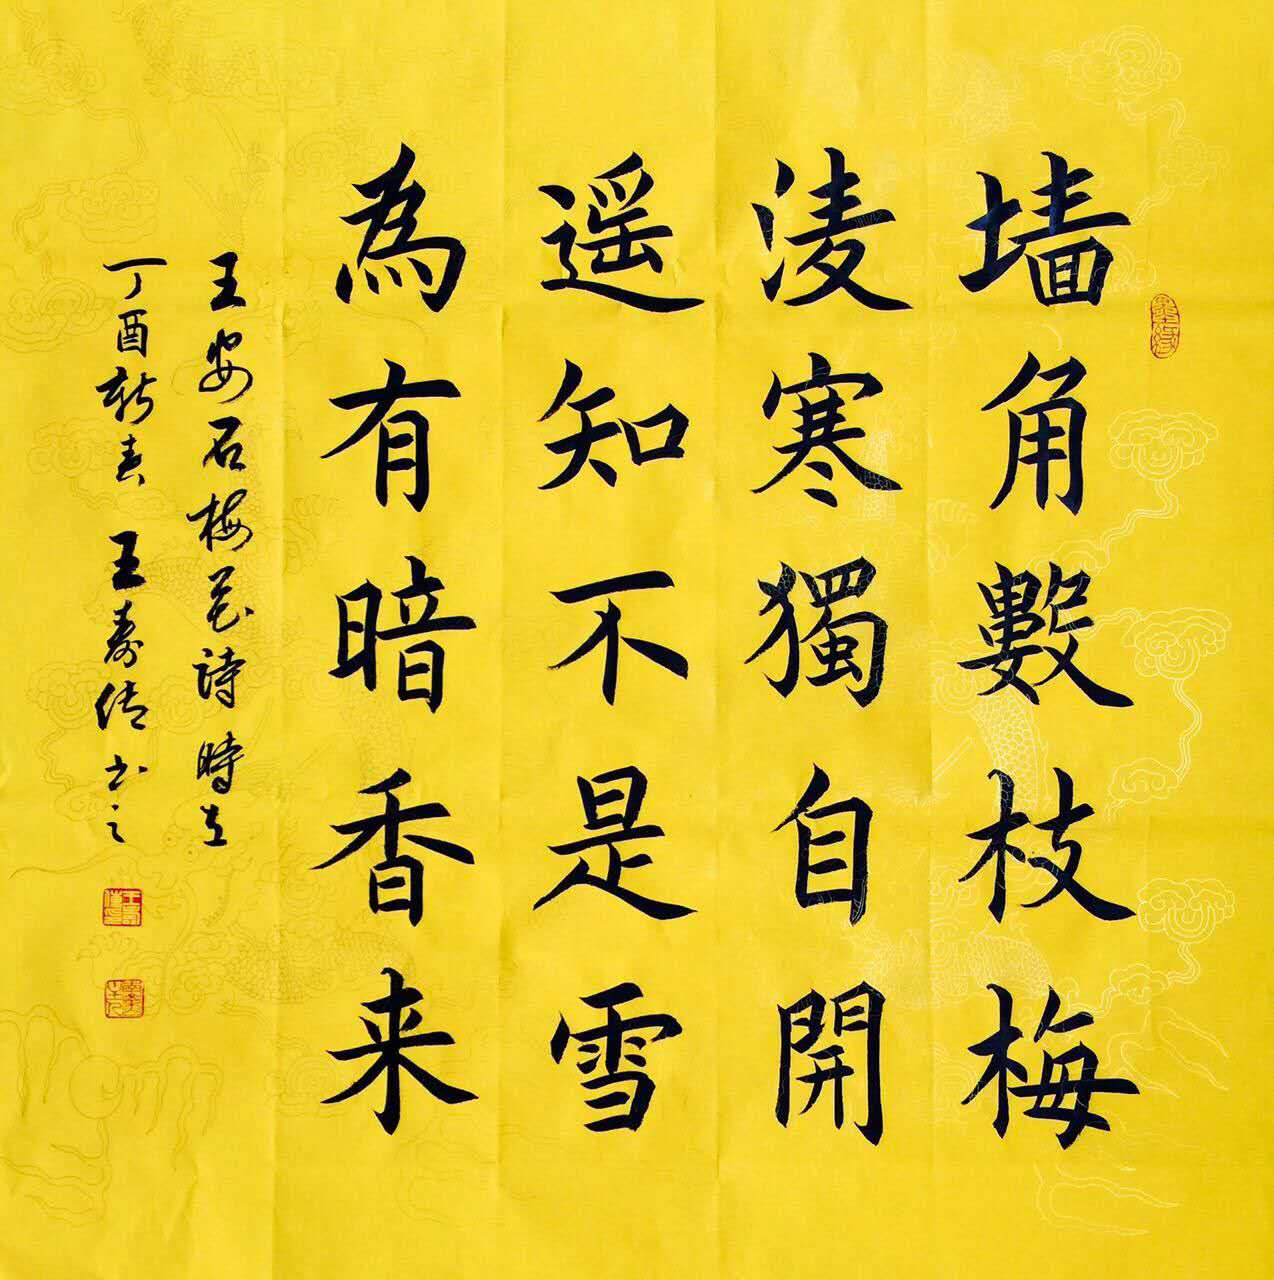 墙角數枝梅
凌寒獨自開
遥知不是雪
為有暗香来
王安石梅花詩時在
丁酉新春 王壽傳书之